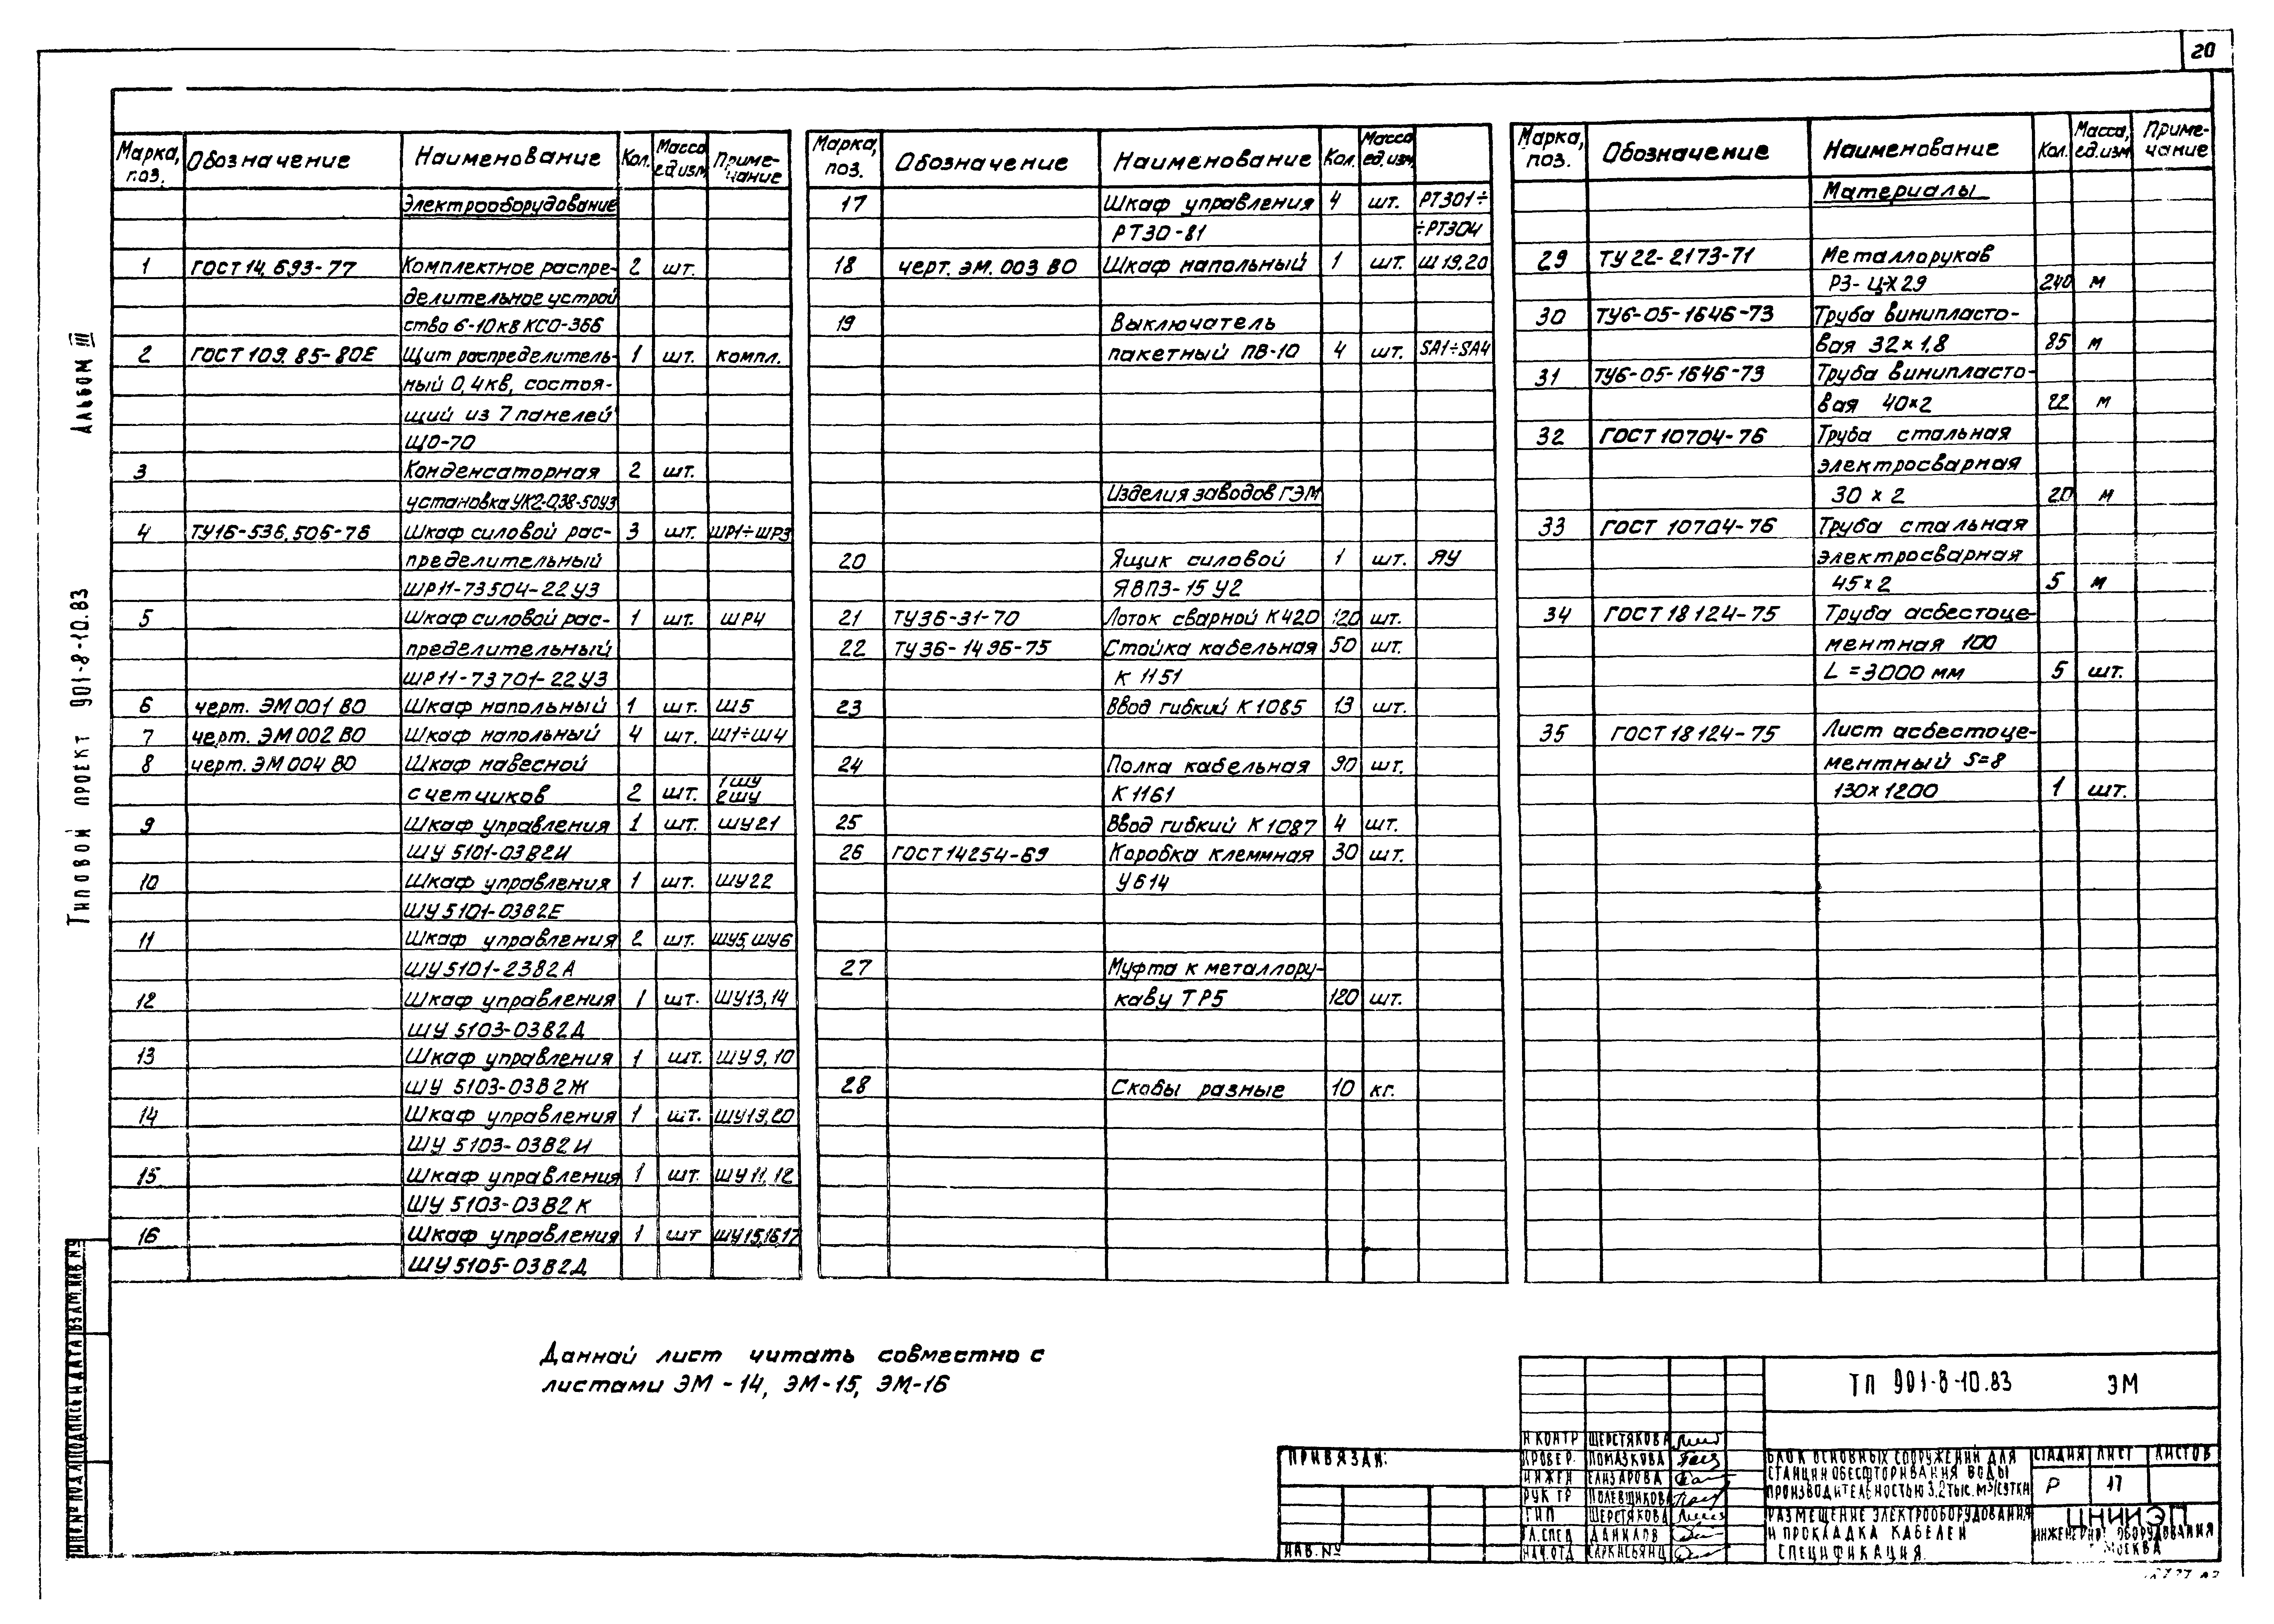 20
Альбом III
Типовой проект 901-8-10.83
Марка, поз. Обозначение Наименование Кол. Масса ед.изм Приме-чание
Электрооборудование
1 ГОСТ 14.693-77 Комплектное распре- 2 шт.
делительное устрой
ство 6-10кв КСО-366
2 ГОСТ 109.85-80Е Щит распределитель- 1 шт. компл.
ный 0,4кв, состоя-
щий из 7 панелей
ЩО-70
3 Конденсаторная 2 шт.
установка УК2-0,38-50У3
4 ТУ16-536.506-76 Шкаф силовой рас- 3 шт. ШР1÷ШР3
пределительный
ШР11-73504-22У3
5 Шкаф силовой рас- 1 шт. ШР4
пределительный
ШР11-73701-22У3
6 черт. ЭМ 001 ВО Шкаф напольный 1 шт. Ш5
7 черт. ЭМ 002 ВО Шкаф напольный 4 шт. Ш1÷Ш4
8 черт. ЭМ 004 ВО Шкаф навесной
счетчиков 2 шт. 1ШУ 2ШУ
9 Шкаф управления 1 шт. ШУ21
ШУ 5101-03В2И
10 Шкаф управления 1 шт. ШУ22
ШУ 5101-03В2Е
11 Шкаф управления 2 шт. ШУ5, ШУ6
ШУ 5101-23В2А
12 Шкаф управления 1 шт. ШУ13,14
ШУ 5103-03В2Д
13 Шкаф управления 1 шт. ШУ9,10
ШУ 5103-03В2Ж
14 Шкаф управления 1 шт. ШУ19,20
ШУ 5103-03В2И
15 Шкаф управления 1 шт. ШУ11,12
ШУ 5103-03В2К
16 Шкаф управления 1 шт ШУ15,16,17
ШУ 5105-03В2Д
Марка, поз. Обозначение Наименование Кол. Масса ед.изм.
17 Шкаф управления 4 шт. РТ301÷
РТ30-81 ÷РТ304
18 черт. ЭМ. 003 ВО Шкаф напольный 1 шт. Ш19,20
19 Выключатель
пакетный ПВ-10 4 шт. SA1÷SA4
Изделия заводов ГЭМ
20 Ящик силовой 1 шт. ЯУ
ЯВПЗ-15 У2
21 ТУ36-31-70 Лоток сварной К420 120 шт.
22 ТУ36-1496-75 Стойка кабельная 50 шт.
К 1151
23 Ввод гибкий К1085 13 шт.
24 Полка кабельная 90 шт.
К 1161
25 Ввод гибкий К1087 4 шт.
26 ГОСТ 14254-69 Коробка клеммная 30 шт.
У614
27 Муфта к металлору-
каву ТР5 120 шт.
28 Скобы разные 10 кг.
Марка, поз. Обозначение Наименование Кол. Масса, ед.изм Приме-чание
Материалы
29 ТУ 22-2173-71 Металлорукав
РЗ-ЦХ29 240 м
30 ТУ6-05-1646-73 Труба винипласто-
вая 32×1,8 85 м
31 ТУ6-05-1646-73 Труба винипласто-
вая 40×2 22 м
32 ГОСТ 10704-76 Труба стальная
электросварная
30 × 2 20 м
33 ГОСТ 10704-76 Труба стальная
электросварная
45×2 5 м
34 ГОСТ 18124-75 Труба асбестоце-
ментная 100
L = 3000 мм 5 шт.
35 ГОСТ 18124-75 Лист асбестоце-
ментный S=8
130×1200 1 шт.
Данный лист читать совместно с
листами ЭМ-14, ЭМ-15, ЭМ-16
Привязан:
Инв. №
Н контр Шерстякова
Провер. Помазкова
Инжен Елизарова
Рук гр Полевщикова
ГИП Шерстякова
Гл. спец Данилов
Нач. отд Саркисьянц
ТП 901-8-10.83 ЭМ
Блок основных сооружений для
станции обесфторивания воды
производительностью 3,2 тыс. м³/сутки
Стадия Лист Листов
Р 17
Размещение электрооборудования
и прокладка кабелей
Спецификация.
ЦНИИЭП
инженерного оборудования
г. Москва
Инв. № подл. Подпись и дата Взам. инв. №